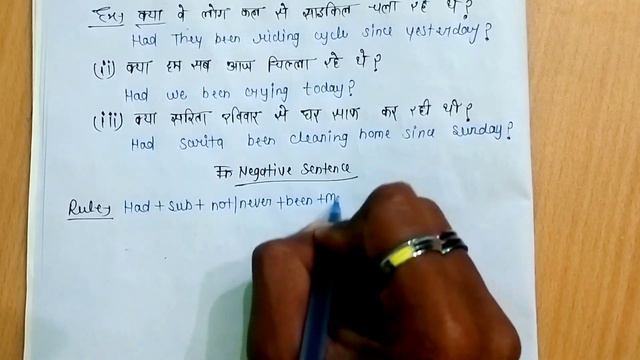 Ex:- क्या वे लोग कल से साइकिल चला रहे थे?
Had They been riding cycle since yesterday?
(ii) क्या हम सब आज चिल्ला रहे थे?
Had we been crying today?
(iii) क्या सरिता रविवार से घर साफ कर रही थी?
Had sarita been cleaning home since sunday?
Negative Sentence
Rule:- Had + Sub + not/never + been + m